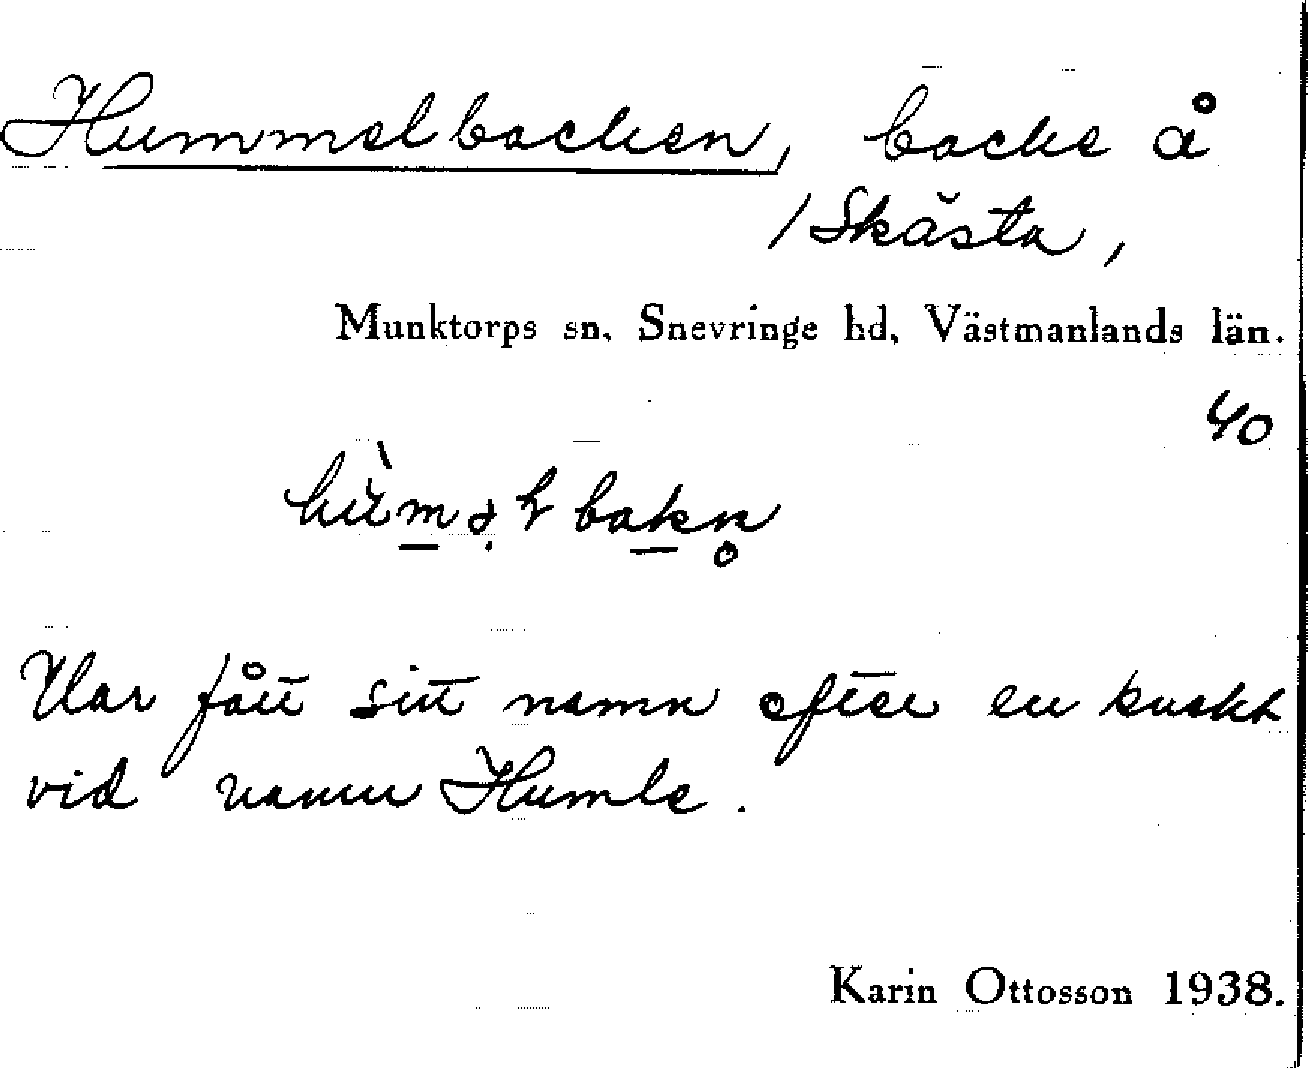 Hummelbacken, backe å
/Skästa,
Munktorps sn, Snevringe hd, Västmanlands län.
40
Har fått sitt namn efter en knekt
vid namn Humle.
Karin Ottosson 1938.